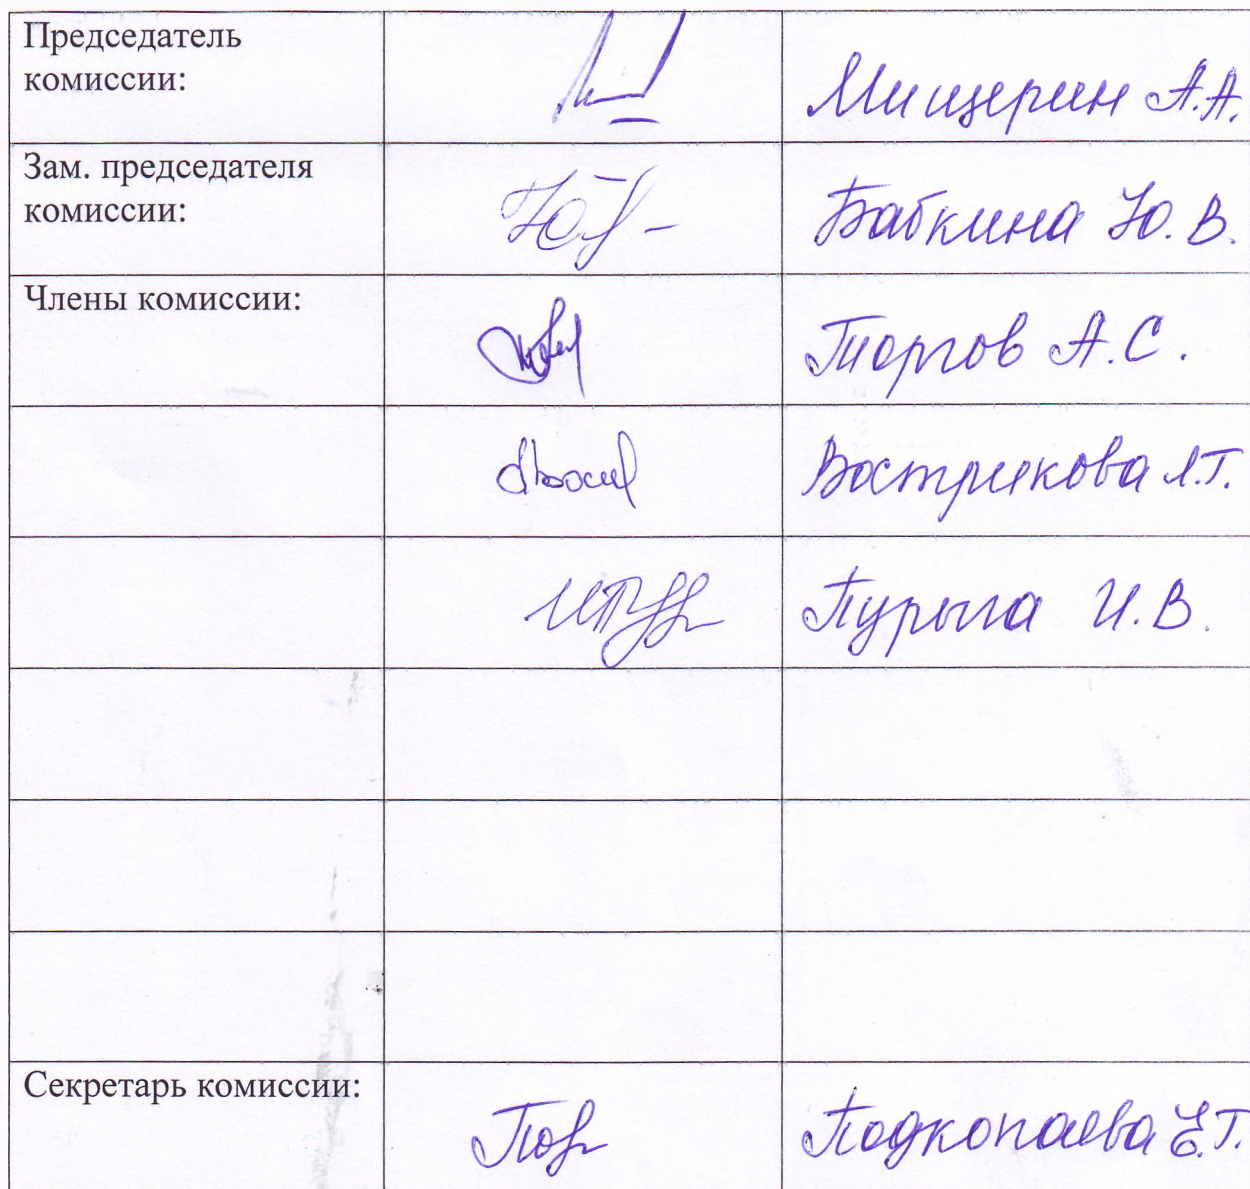 Председатель
комиссии:
Мищерин А.А.
Зам. председателя
комиссии:
Бабкина Ю.В.
Члены комиссии:
А.С.
Вострикова Л.Г.
Пурыга И.В.
Секретарь комиссии:
Подкопаева Е.Г.